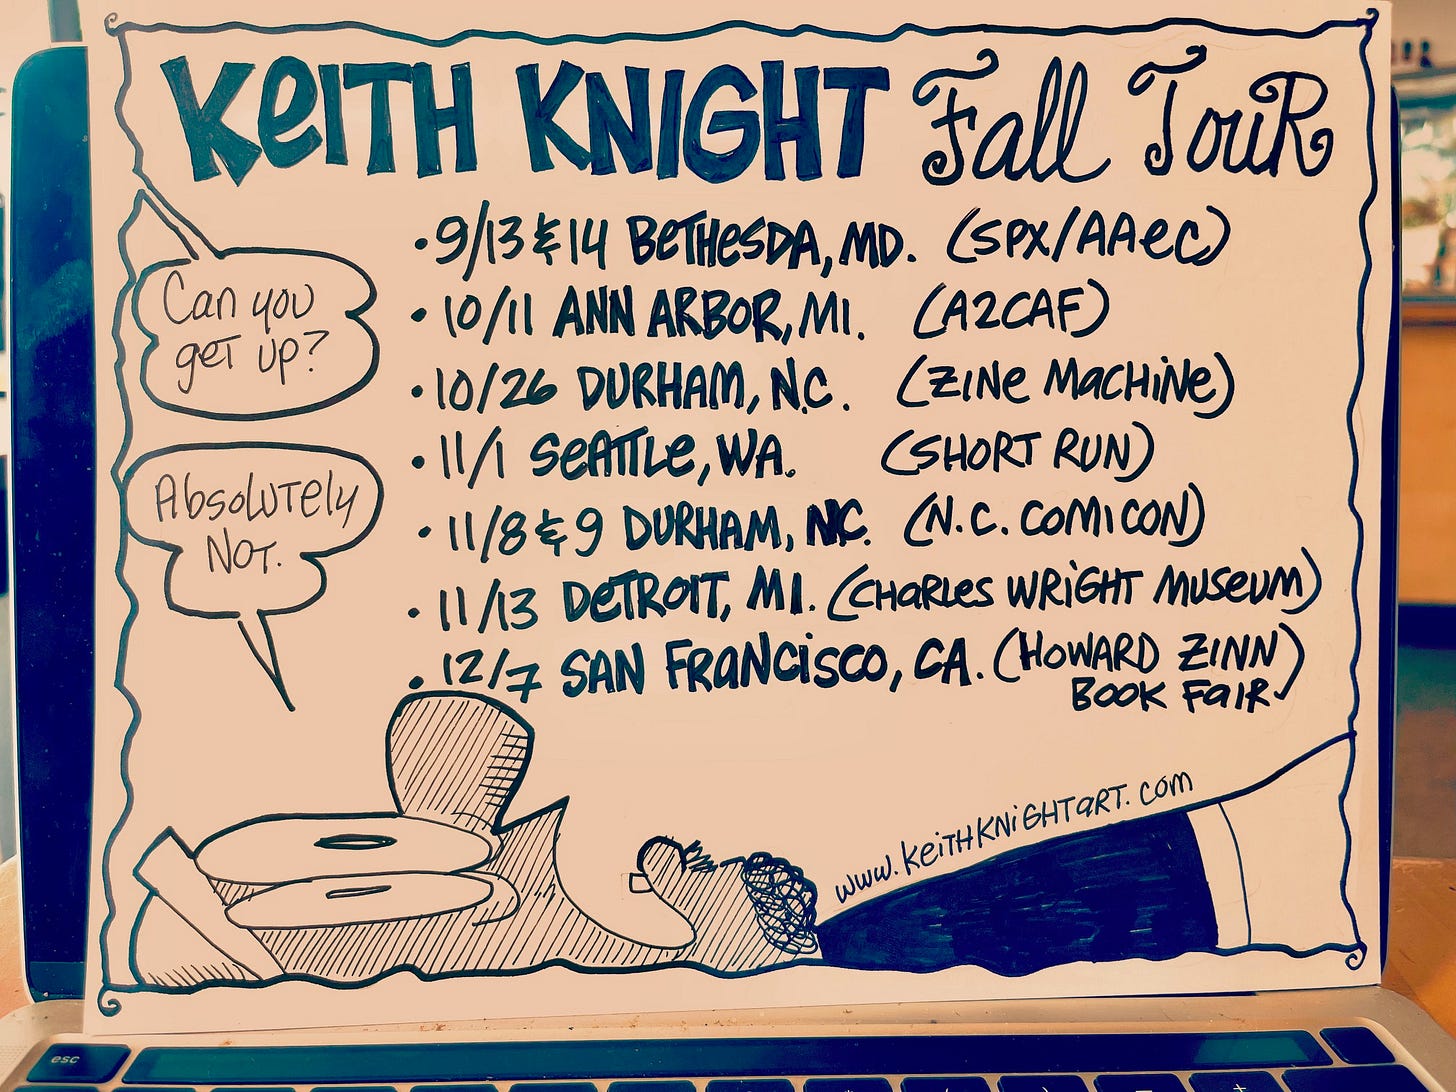 KEITH KNIGHT Fall Tour
Can you
get up?
Absolutely
Not.
• 9/13 & 14 BETHESDA, MD. (SPX/AAEC)
• 10/11 ANN ARBOR, MI. (A2CAF)
• 10/26 DURHAM, N.C. (ZINE MACHINE)
• 11/1 SEATTLE, WA. (SHORT RUN)
• 11/8 & 9 DURHAM, N.C. (N.C. COMICON)
• 11/13 DETROIT, MI. (CHARLES WRIGHT MUSEUM)
• 12/7 SAN FRANCISCO, CA. (HOWARD ZINN
BOOK FAIR)
www.KEITHKNIGHTART.com
esc